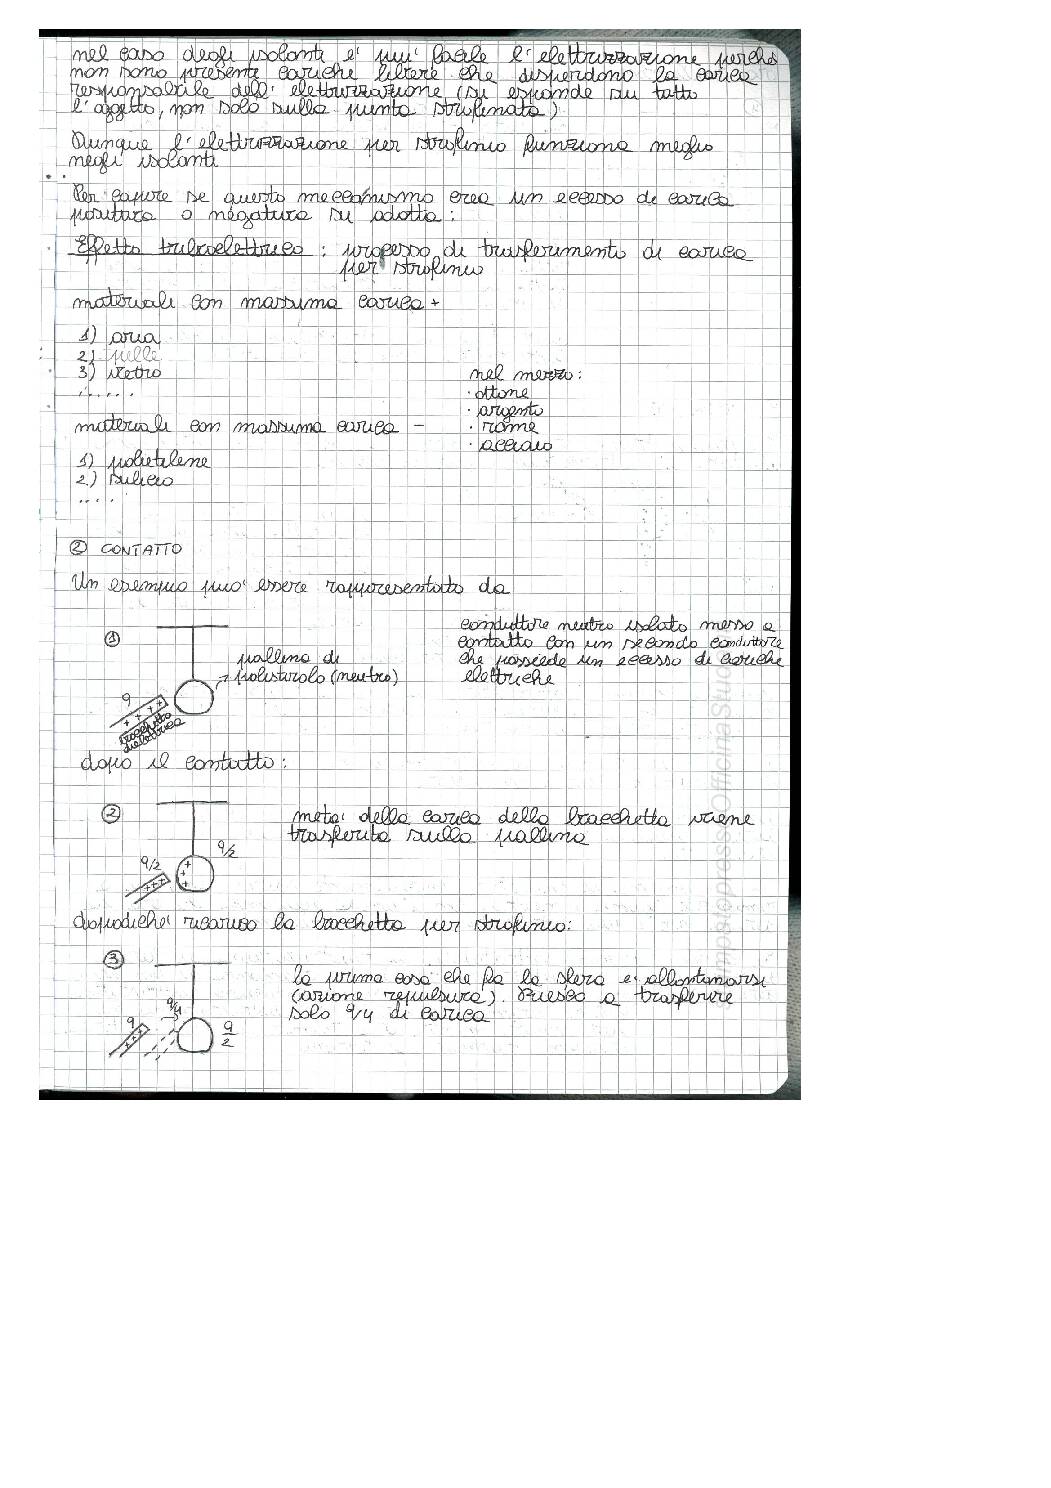 nel caso degli isolanti e' piu' facile l'elettrizzazione perchè
non sono presente cariche libere che disperdono la carica
responsabile dell'elettrizzazione (si espande su tutto
l'oggetto, non solo sulla punta strofinata)
Dunque l'elettrizzazione per strofinio funziona meglio
negli isolanti
Per capire se questo meccanismo crea un eccesso di carica
positiva o negativa si adotta:
Effetto triboelettrico : processo di trasferimento di carica
per strofinio
materiali con massima carica +
1) aria
2) pelle
3) vetro
.......
nel mezzo:
· ottone
· argento
· rame
· acciaio
materiali con massima carica -
1) polietilene
2) silicio
.....
② CONTATTO
Un esempio puo' essere rappresentato da
①
pallina di
polistirolo (neutro)
q
+ + + +
bacchetta
dielettrica
conduttore neutro isolato messo a
contatto con un secondo conduttore
che possiede un eccesso di cariche
elettriche
dopo il contatto:
②
q/2
q/2
+++
+
+
+
meta' della carica della bacchetta viene
trasferita sulla pallina
dopodiche' ricarico la bacchetta per strofinio:
③
q
q/4
q
2
la prima cosa che fa la sfera e' allontanarsi
(azione repulsiva). Riesco a trasferire
solo q/4 di carica
StampatopressoOfficinaStudenti